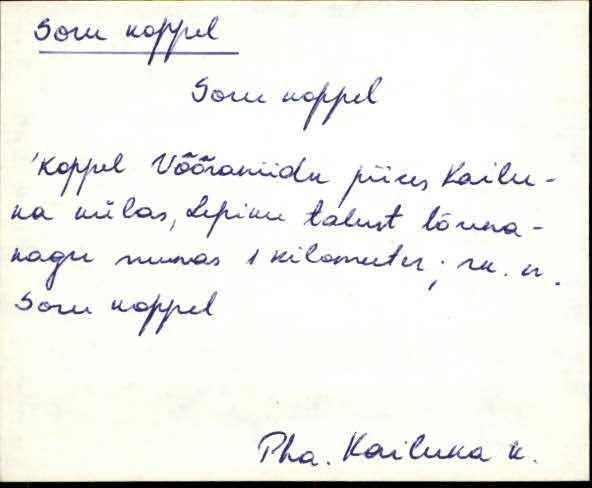 Soru koppel
Soru koppel
'Koppel Võõramiidu piires Kailu-
ka külas, Lepiku talust lõuna-
kagu suunas 1 kilomeeter; rk. n.
Soru koppel
Pha. Kailuka k.